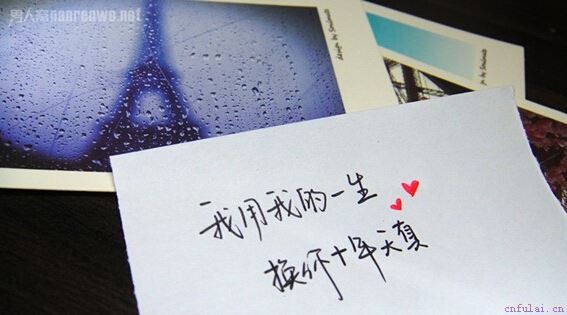 男人窝nanrenwo.net
我用我的一生
换你十年天真
cnfulai.cn